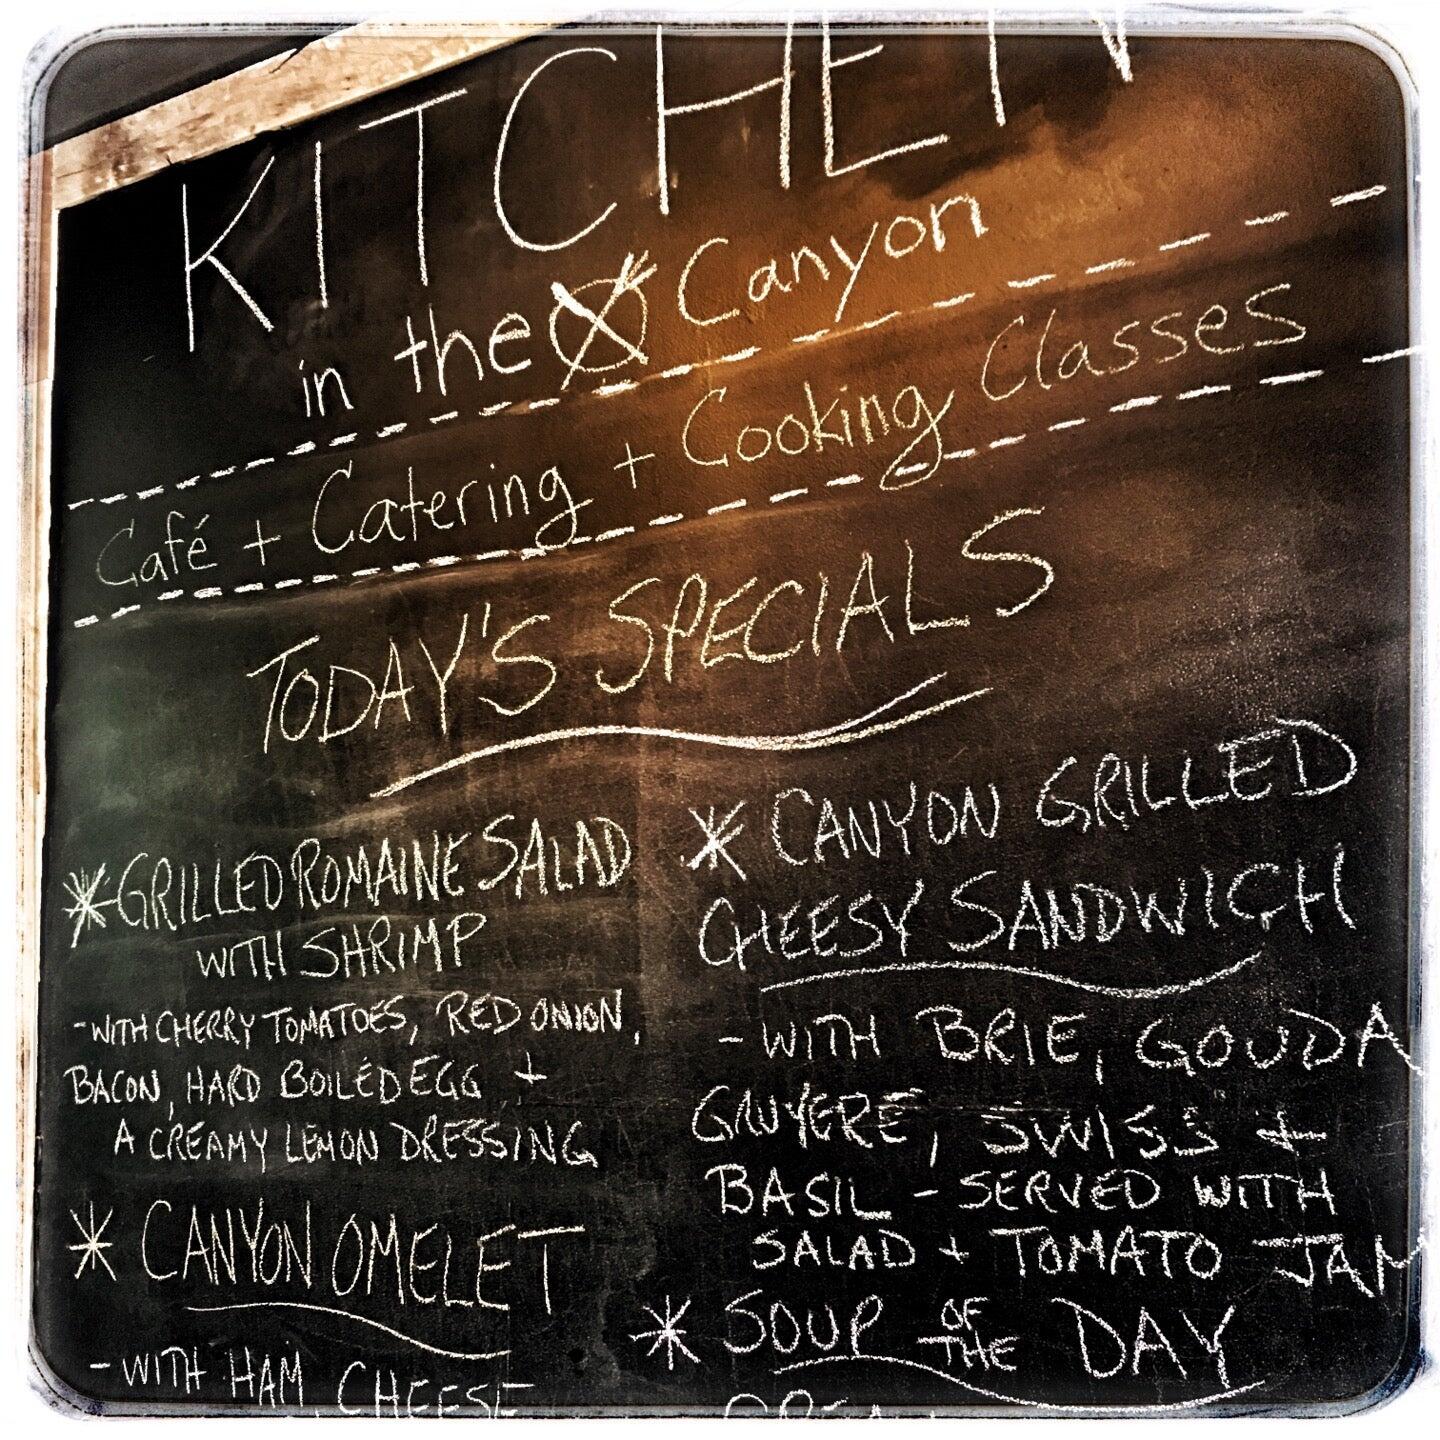 KITCHEN
in the Canyon
Café + Catering + Cooking Classes
TODAY'S SPECIALS
* GRILLED ROMAINE SALAD
WITH SHRIMP
- WITH CHERRY TOMATOES, RED ONION,
BACON, HARD BOILED EGG +
A CREAMY LEMON DRESSING
* CANYON OMELET
- WITH HAM, CHEESE
* CANYON GRILLED
CHEESY SANDWICH
- WITH BRIE, GOUDA
GRUYERE, SWISS +
BASIL - SERVED WITH
SALAD + TOMATO JAM
* SOUP OF THE DAY